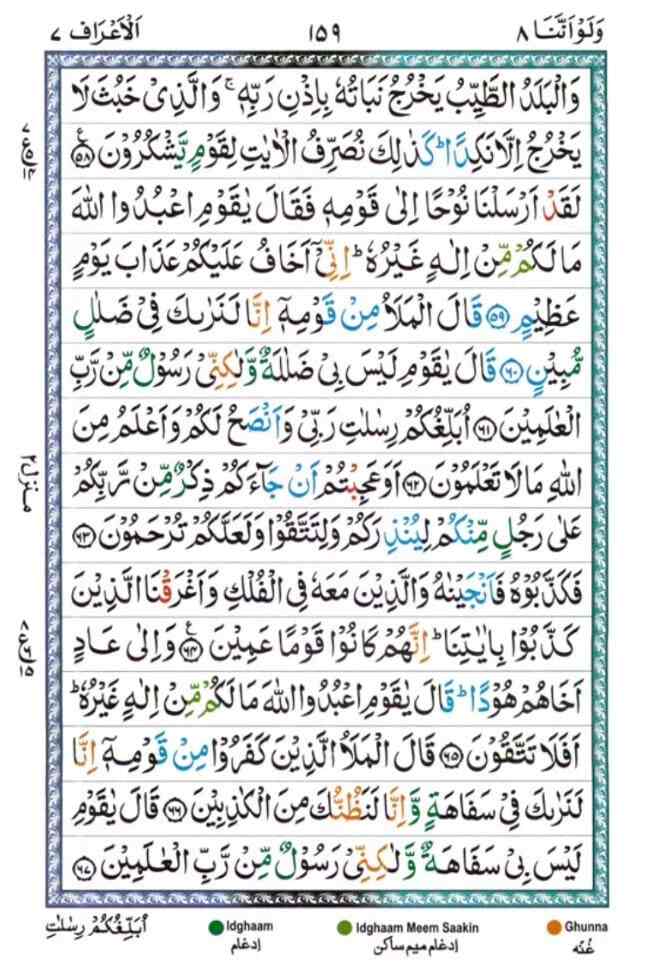 وَلَوْ اَنَّنَا ٨ ١٥٩ اَلْاَعْرَاف ٧
وَالْبَلَدُ الطَّيِّبُ يَخْرُجُ نَبَاتُهٗ بِاِذْنِ رَبِّهٖ ۚ وَالَّذِىْ خَبُثَ لَا
يَخْرُجُ اِلَّا نَكِدًا ؕ كَذٰلِكَ نُصَرِّفُ الْاٰيٰتِ لِقَوْمٍ يَّشْكُرُوْنَ ۝٥٨
لَقَدْ اَرْسَلْنَا نُوْحًا اِلٰى قَوْمِهٖ فَقَالَ يٰقَوْمِ اعْبُدُوا اللّٰهَ
مَا لَكُمْ مِّنْ اِلٰهٍ غَيْرُهٗ ؕ اِنِّىْۤ اَخَافُ عَلَيْكُمْ عَذَابَ يَوْمٍ
عَظِيْمٍ ۝٥٩ قَالَ الْمَلَاُ مِنْ قَوْمِهٖۤ اِنَّا لَنَرٰىكَ فِىْ ضَلٰلٍ
مُّبِيْنٍ ۝٦٠ قَالَ يٰقَوْمِ لَيْسَ بِىْ ضَلٰلَةٌ وَّلٰكِنِّىْ رَسُوْلٌ مِّنْ رَّبِّ
الْعٰلَمِيْنَ ۝٦١ اُبَلِّغُكُمْ رِسٰلٰتِ رَبِّىْ وَاَنْصَحُ لَكُمْ وَاَعْلَمُ مِنَ
اللّٰهِ مَا لَا تَعْلَمُوْنَ ۝٦٢ اَوَعَجِبْتُمْ اَنْ جَآءَكُمْ ذِكْرٌ مِّنْ رَّبِّكُمْ
عَلٰى رَجُلٍ مِّنْكُمْ لِيُنْذِرَكُمْ وَلِتَتَّقُوْا وَلَعَلَّكُمْ تُرْحَمُوْنَ ۝٦٣
فَكَذَّبُوْهُ فَاَنْجَيْنٰهُ وَالَّذِيْنَ مَعَهٗ فِى الْفُلْكِ وَاَغْرَقْنَا الَّذِيْنَ
كَذَّبُوْا بِاٰيٰتِنَا ؕ اِنَّهُمْ كَانُوْا قَوْمًا عَمِيْنَ ۝٦٤ وَاِلٰى عَادٍ
اَخَاهُمْ هُوْدًا ؕ قَالَ يٰقَوْمِ اعْبُدُوا اللّٰهَ مَا لَكُمْ مِّنْ اِلٰهٍ غَيْرُهٗ ؕ
اَفَلَا تَتَّقُوْنَ ۝٦٥ قَالَ الْمَلَاُ الَّذِيْنَ كَفَرُوْا مِنْ قَوْمِهٖۤ اِنَّا
لَنَرٰىكَ فِىْ سَفَاهَةٍ وَّاِنَّا لَنَظُنُّكَ مِنَ الْكٰذِبِيْنَ ۝٦٦ قَالَ يٰقَوْمِ
لَيْسَ بِىْ سَفَاهَةٌ وَّلٰكِنِّىْ رَسُوْلٌ مِّنْ رَّبِّ الْعٰلَمِيْنَ ۝٦٧
منزل ٢
اُبَلِّغُكُمْ رِسٰلٰتِ
Idghaam
اِدغام
Idghaam Meem Saakin
اِدغام ميم ساكن
Ghunna
غُنّه